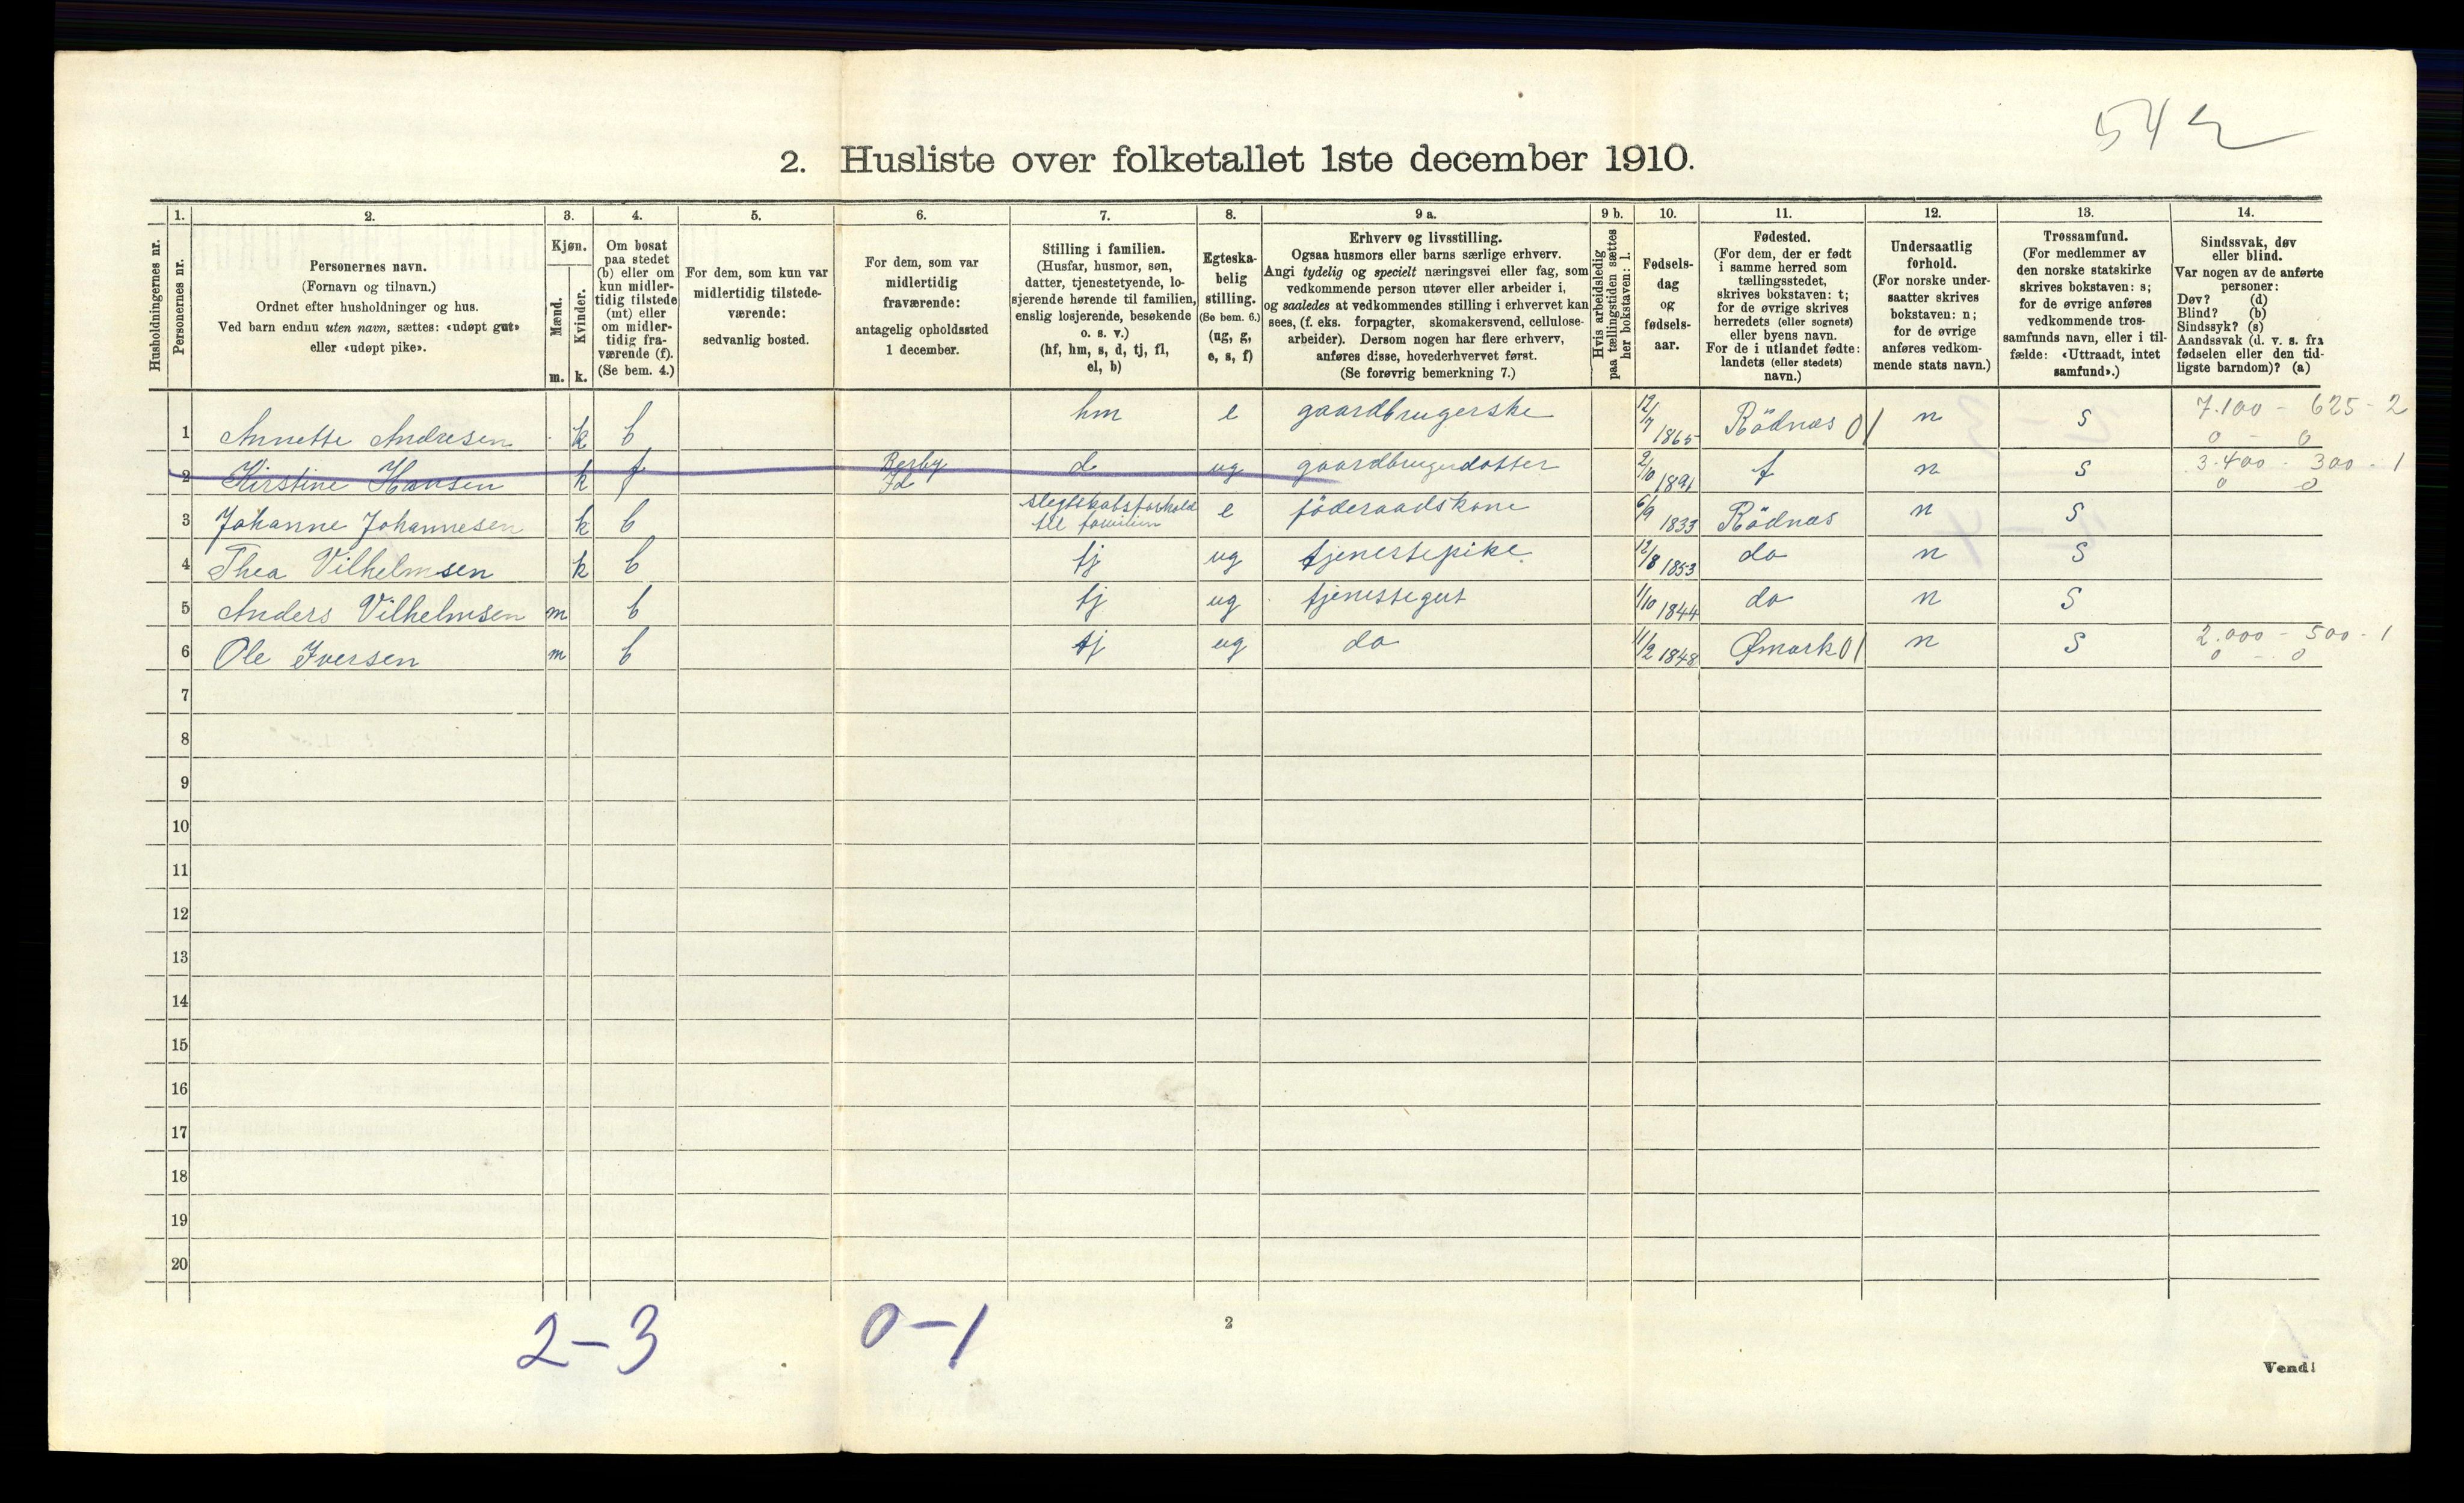 542
2. Husliste over folketallet 1ste december 1910.
Husholdningernes nr.
1. Personernes nr.
2. Personernes navn. (Fornavn og tilnavn.) Ordnet efter husholdninger og hus. Ved barn endnu uten navn, sættes: «udøpt gut» eller «udøpt pike».
3. Kjøn. Mænd. m. Kvinder. k.
4. Om bosat paa stedet (b) eller om kun midlertidig tilstede (mt) eller om midlertidig fraværende (f). (Se bem. 4.)
5. For dem, som kun var midlertidig tilstedeværende: sedvanlig bosted.
6. For dem, som var midlertidig fraværende: antagelig opholdssted 1 december.
7. Stilling i familien. (Husfar, husmor, søn, datter, tjenestetyende, losjerende hørende til familien, enslig losjerende, besøkende o. s. v.) (hf, hm, s, d, tj, fl, el, b)
8. Egteskabelig stilling. (Se bem. 6.) (ug, g, e, s, f)
9 a. Erhverv og livsstilling. Ogsaa husmors eller barns særlige erhverv. Angi tydelig og specielt næringsvei eller fag, som vedkommende person utøver eller arbeider i, og saaledes at vedkommendes stilling i erhvervet kan sees, (f. eks. forpagter, skomakersvend, cellulosearbeider). Dersom nogen har flere erhverv, anføres disse, hovederhvervet først. (Se forøvrig bemerkning 7.)
9 b. Hvis arbeidsledig paa tællingstiden sættes her bokstaven: l.
10. Fødselsdag og fødselsaar.
11. Fødested. (For dem, der er født i samme herred som tællingsstedet, skrives bokstaven: t; for de øvrige skrives herredets (eller sognets) eller byens navn. For de i utlandet fødte: landets (eller stedets) navn.)
12. Undersaatlig forhold. (For norske undersaatter skrives bokstaven: n; for de øvrige anføres vedkommende stats navn.)
13. Trossamfund. (For medlemmer av den norske statskirke skrives bokstaven: s; for de øvrige anføres vedkommende trossamfunds navn, eller i tilfælde: «Uttraadt, intet samfund».)
14. Sindssvak, døv eller blind. Var nogen av de anførte personer: Døv? (d) Blind? (b) Sindssyk? (s) Aandssvak (d. v. s. fra fødselen eller den tidligste barndom)? (a)
1 Annette Andresen k b hm e gaardbrugerske 12/7 1865 Rödnæs 01 n S 7.100 - 625 - 2 0 - 0
2 Kirstine Hansen k f Berby Id d ug gaardbrugerdatter 2/10 1891 t n S 3.400 - 300 - 1 0 0
3 Johanne Johannesen k b slegtskabsforhold til familien e föderaadskone 6/9 1833 Rödnæs n S
4 Thea Vilhelmsen k b tj ug tjenestepike 12/8 1853 do n S
5 Anders Vilhelmsen m b tj ug tjenestegut 1/10 1844 do n S
6 Ole Iversen m b tj ug do 11/2 1848 Ømark 01 n S 2.000 - 500 - 1 0 - 0
7
8
9
10
11
12
13
14
15
16
17
18
19
20
2-3 0-1
2
Vend!